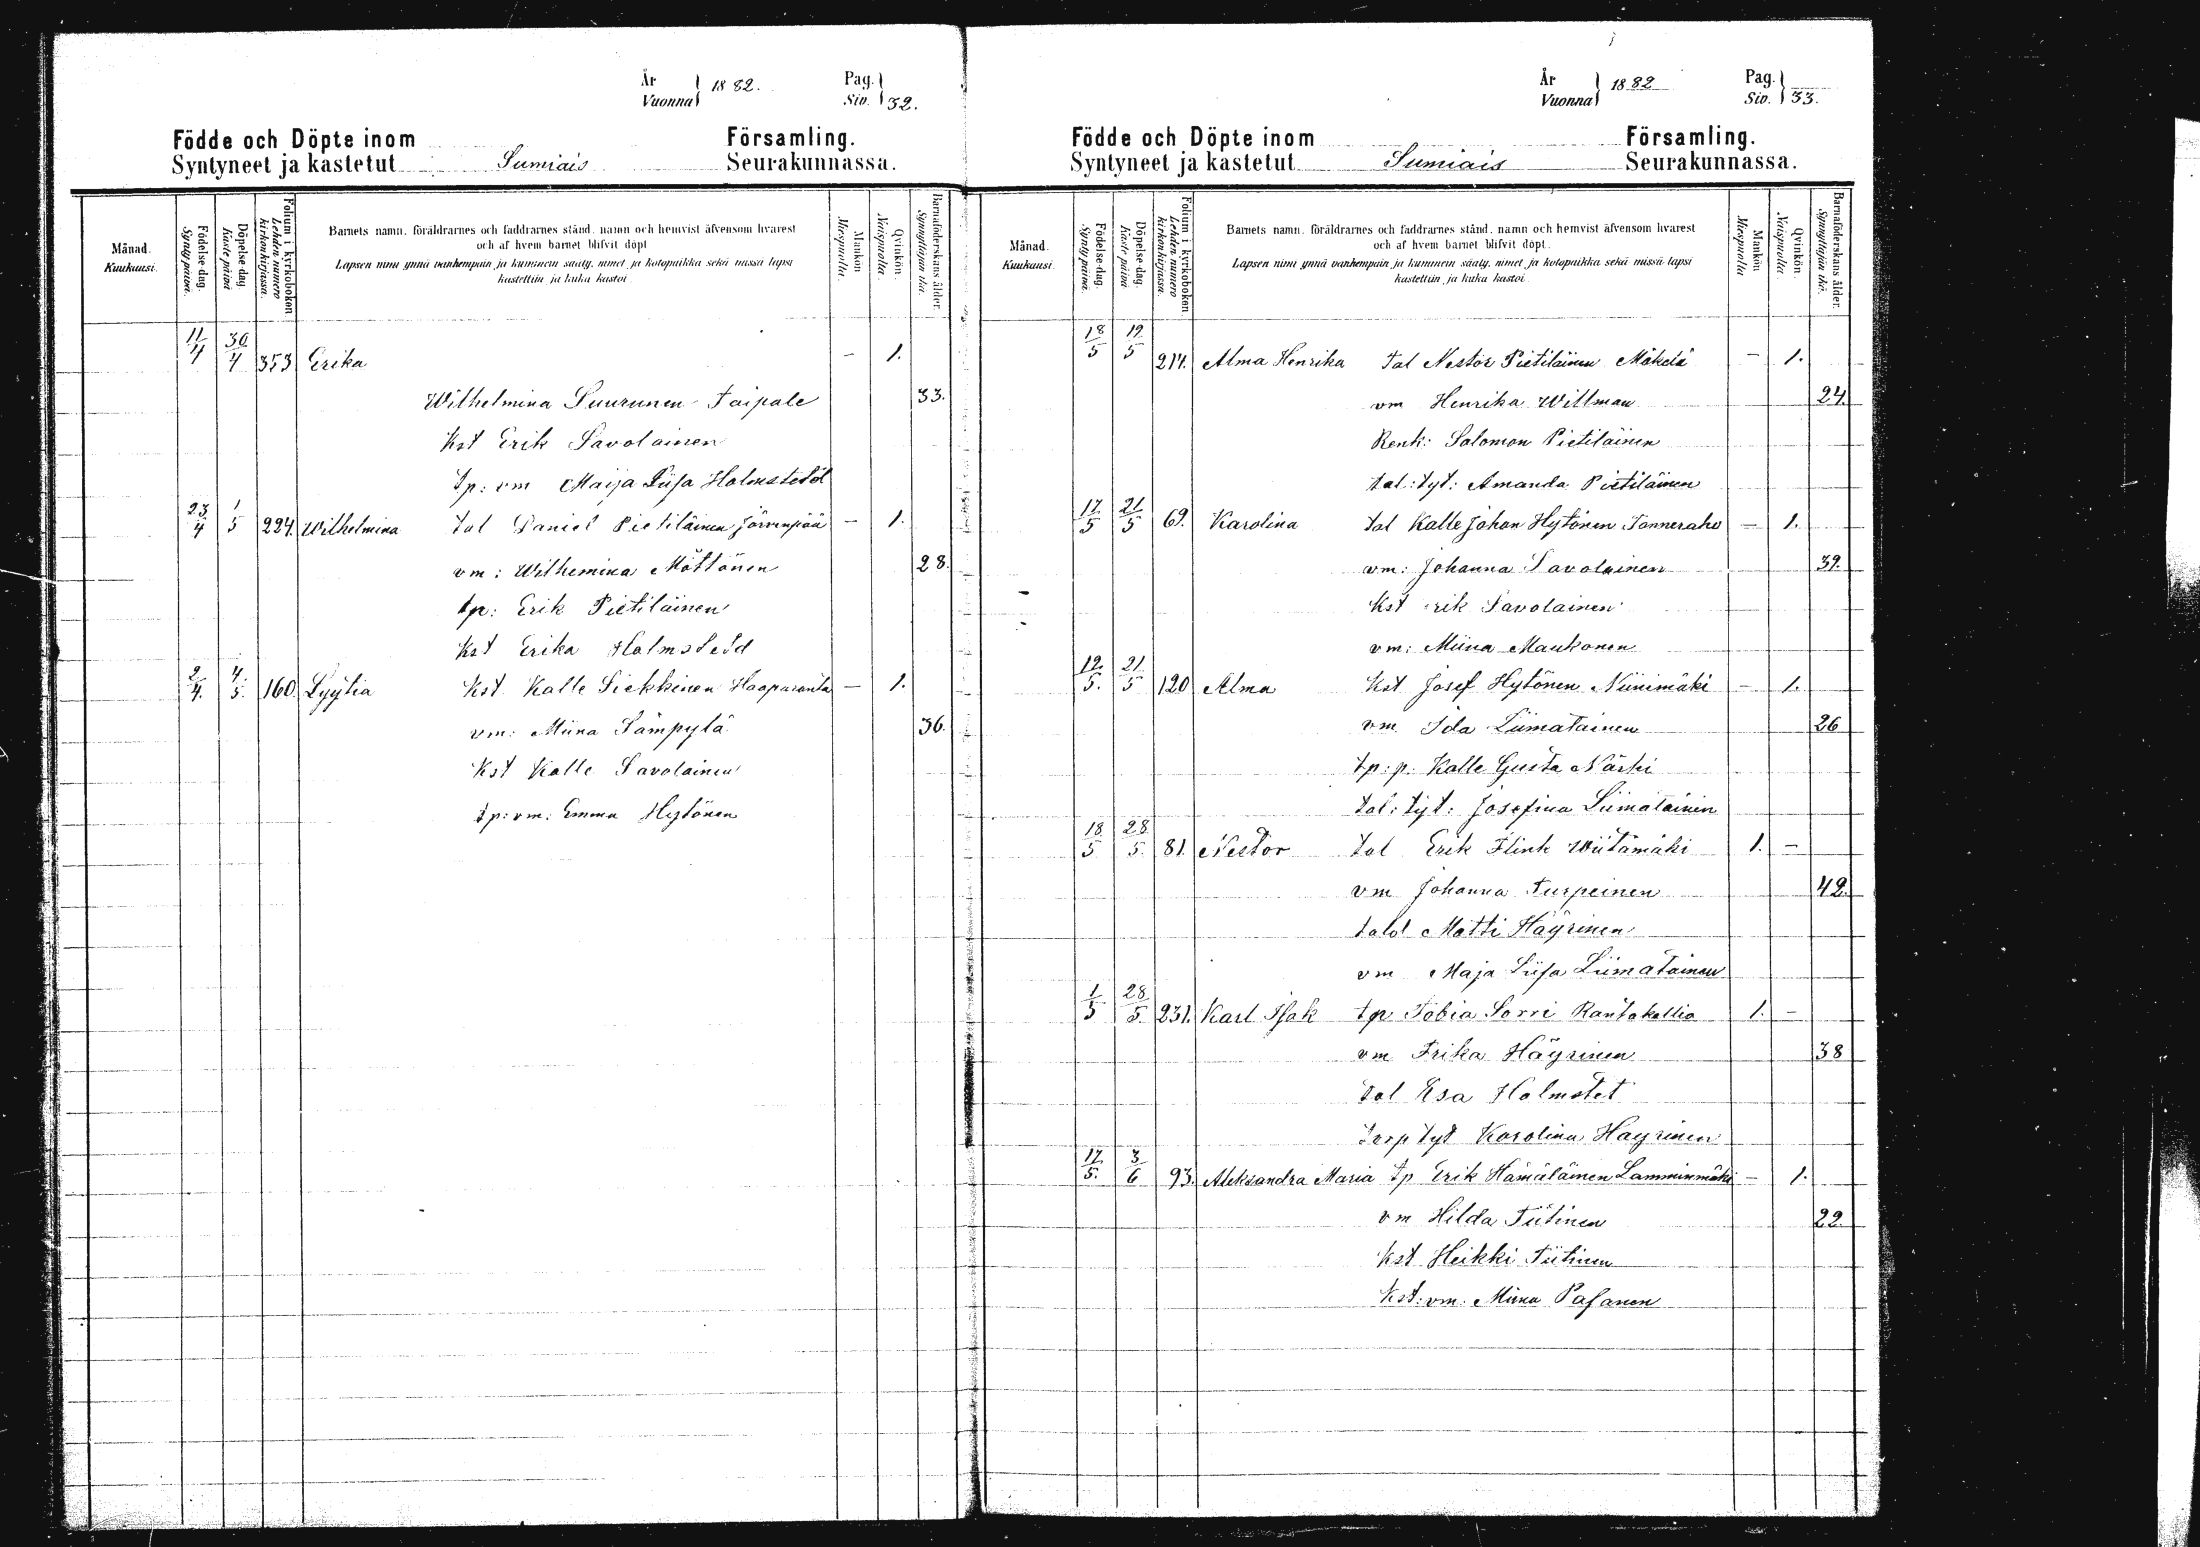 År Vuonna 1882. Pag. Siv. 32.
Födde och Döpte inom Församling.
Syntyneet ja kastetut Sumiais Seurakunnassa.
Månad. Kuukausi.
Födelse dag. Synty päivä.
Döpelse dag. Kaste päivä
Folium i kyrkoboken. Lehden numero kirkonkirjassa.
Barnets namn, föräldrarnes och faddrarnes stånd, namn och hemvist äfvensom hvarest
och af hvem barnet blifvit döpt
Lapsen nimi ynnä vanhempain ja kummein sääty, nimet ja kotopaikka sekä missä lapsi
kastettiin ja kuka kastoi.
Mankön Miespuolta.
Qvinkön. Naispuolta.
Barnaföderskans ålder. Synnyttäjän ikä.
11/4 30/4 353 Erika — 1.
Wilhelmina Suurunen Taipale 33.
Kst Erik Savolainen
tp: vm Maija Liisa Holmstedt
23/4 1/5 224. Wilhelmina tal Daniel Pietiläinen Järvenpää — 1.
vm: Wilhemina Möttönen 28.
tp: Erik Pietiläinen
Kst Erika Holmstedd
2/4. 4./5. 160. Lyytia Kst Kalle Siekkinen Haaparanta — 1.
vm: Miina Sämpylä 36.
Kst Kalle Savolainen
tp: vm: Emma Hytönen
År Vuonna 1882 Pag. Siv. 33.
Födde och Döpte inom Församling.
Syntyneet ja kastetut Sumiais Seurakunnassa.
Månad. Kuukausi.
Födelse dag. Synty päivä.
Döpelse dag. Kaste päivä
Folium i kyrkoboken. Lehden numero kirkonkirjassa.
Barnets namn, föräldrarnes och faddrarnes stånd, namn och hemvist äfvensom hvarest
och af hvem barnet blifvit döpt.
Lapsen nimi ynnä vanhempain ja kummein sääty, nimet ja kotopaikka sekä missä lapsi
kastettiin, ja kuka kastoi.
Mankön Miespuolta
Qvinkön. Naispuolta
Barnaföderskans ålder. Synnyttäjän ikä.
18/5 19/5 217. Alma Henrika Tal Nestor Pietiläinen Mäkelä — 1.
vm Henrika Willman 24.
Renk: Salomon Pietiläinen
tal: tyt: Amanda Pietiläinen
17./5 21/5 69. Karolina tal Kalle Johan Hytönen Tanneraho — 1.
vm: Johanna Savolainen 39.
Kst rik Savolainen
vm: Miina Maukonen
12./5. 21./5 120 Alma Kst Josef Hytönen Niinimäki — 1.
vm Ida Liimatainen 26
tp: p: Kalle Gusta Närhi
tal: tyt: Josefina Liimatainen
18/5 28./5. 81. Nestor tal Erik Flink Wiitamäki 1. —
vm Johanna Turpeinen 42.
tal Matti Häyrinen
vm Maja Liisa Liimatainen
1/5 28/5. 231. Karl Isak tp Tobia Sorri Rantakallio 1. —
vm Frika Häyrinen 38
tal Esa Holmstet
torp tyt Karolina Hayrinen
17./5. 3/6 93. Aleksandra Maria tp Erik Hämäläinen Lamminmäki — 1.
vm Hilda Tiitinen 22.
Kst Heikki Tiitinen
Kst: vm: Miina Pasanen